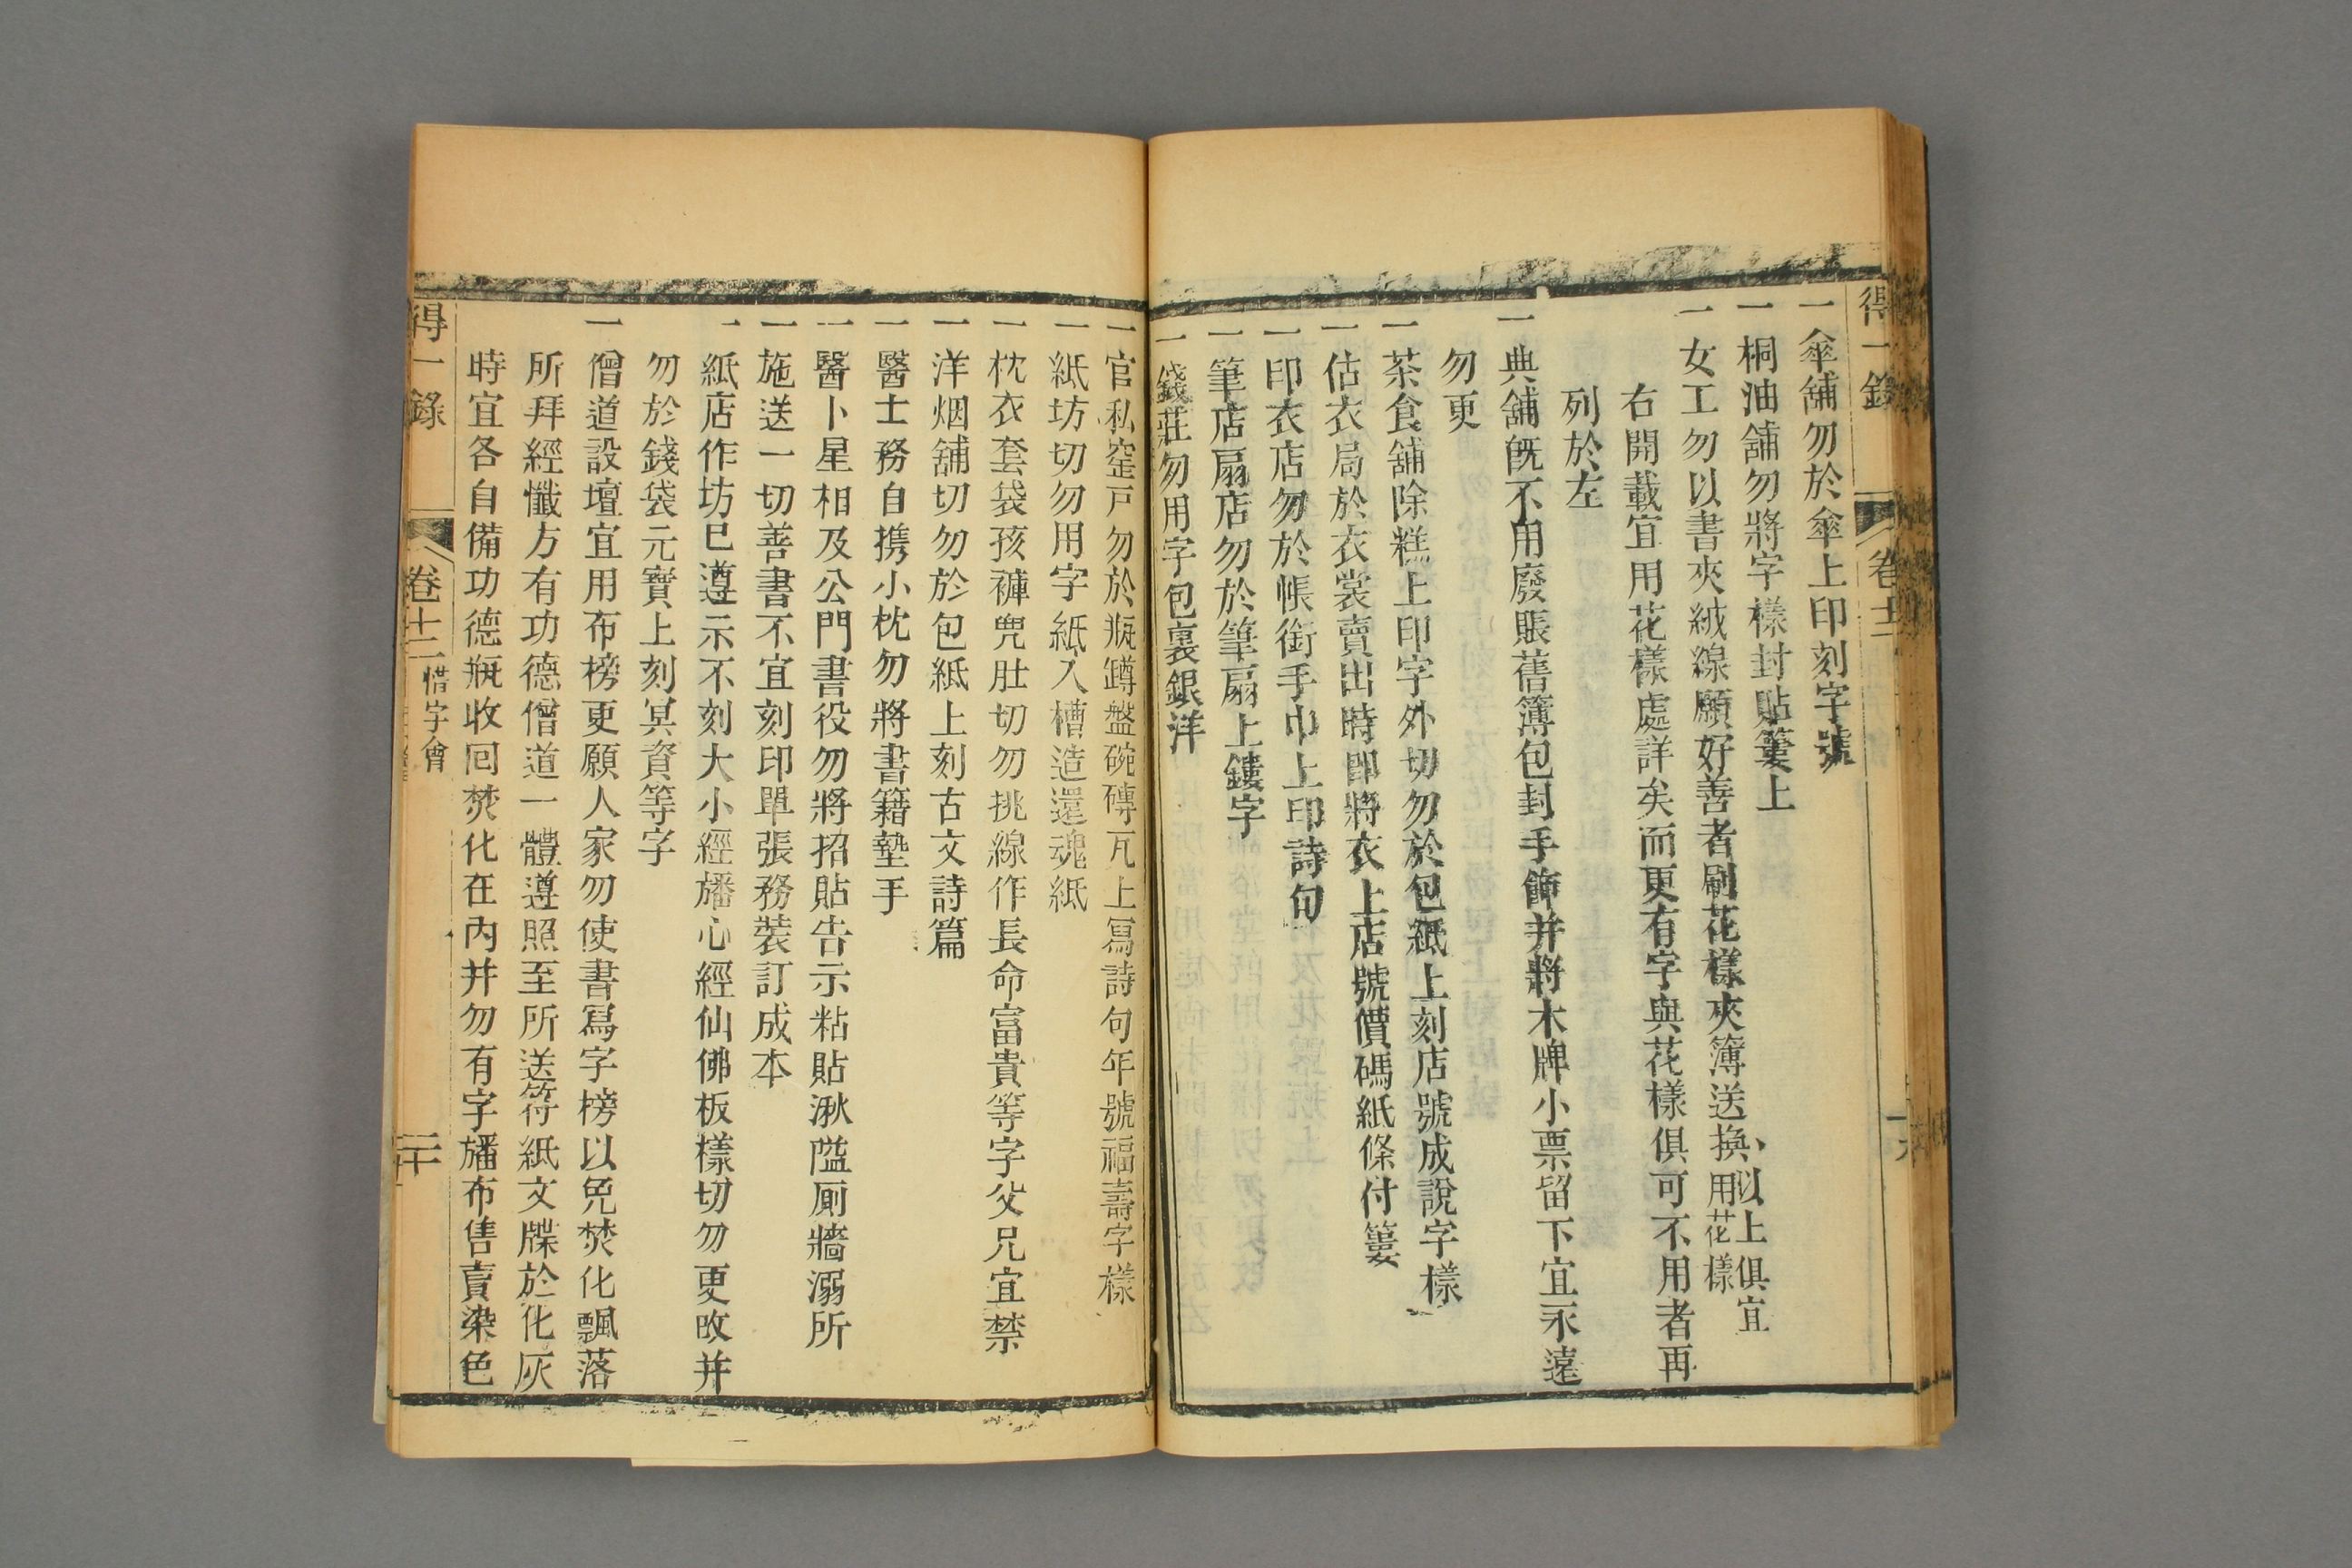 得一錄
卷十二
一傘舖勿於傘上印刻字號
一桐油舖勿將字樣封貼簍上
一女工勿以書夾絨線願好善者刷花樣夾簿送換以上俱宜用花樣
右開載宜用花樣處詳矣而更有字與花樣俱可不用者再
列於左
一典舖既不用廢賬舊簿包封手飾并將木牌小票留下宜永遠
勿更
一茶食舖除糕上印字外切勿於包紙上刻店號成說字樣
一估衣局於衣裳賣出時即將衣上店號價碼紙條付簍
一印衣店勿於帳銜手巾上印詩句
一筆店扇店勿於筆扇上鏤字
一錢莊勿用字包裏銀洋
一官私窰戸勿於瓶罇盤碗磚瓦上寫詩句年號福壽字樣
一紙坊切勿用字紙入槽造還魂紙
一枕衣套袋孩褲兜肚切勿挑線作長命富貴等字父兄宜禁
一洋烟舖切勿於包紙上刻古文詩篇
一醫士務自携小枕勿將書籍墊手
一醫卜星相及公門書役勿將招貼告示粘貼湫隘厠牆溺所
一施送一切善書不宜刻印單張務裝訂成本
一紙店作坊已遵示不刻大小經旛心經仙佛板樣切勿更改并
勿於錢袋元寶上刻冥資等字
一僧道設壇宜用布榜更願人家勿使書寫字榜以免焚化飄落
所拜經懺方有功德僧道一體遵照至所送符紙文牒於化灰
時宜各自備功德瓶收回焚化在內并勿有字旛布售賣染色
得一錄
卷十二
惜字會
二十